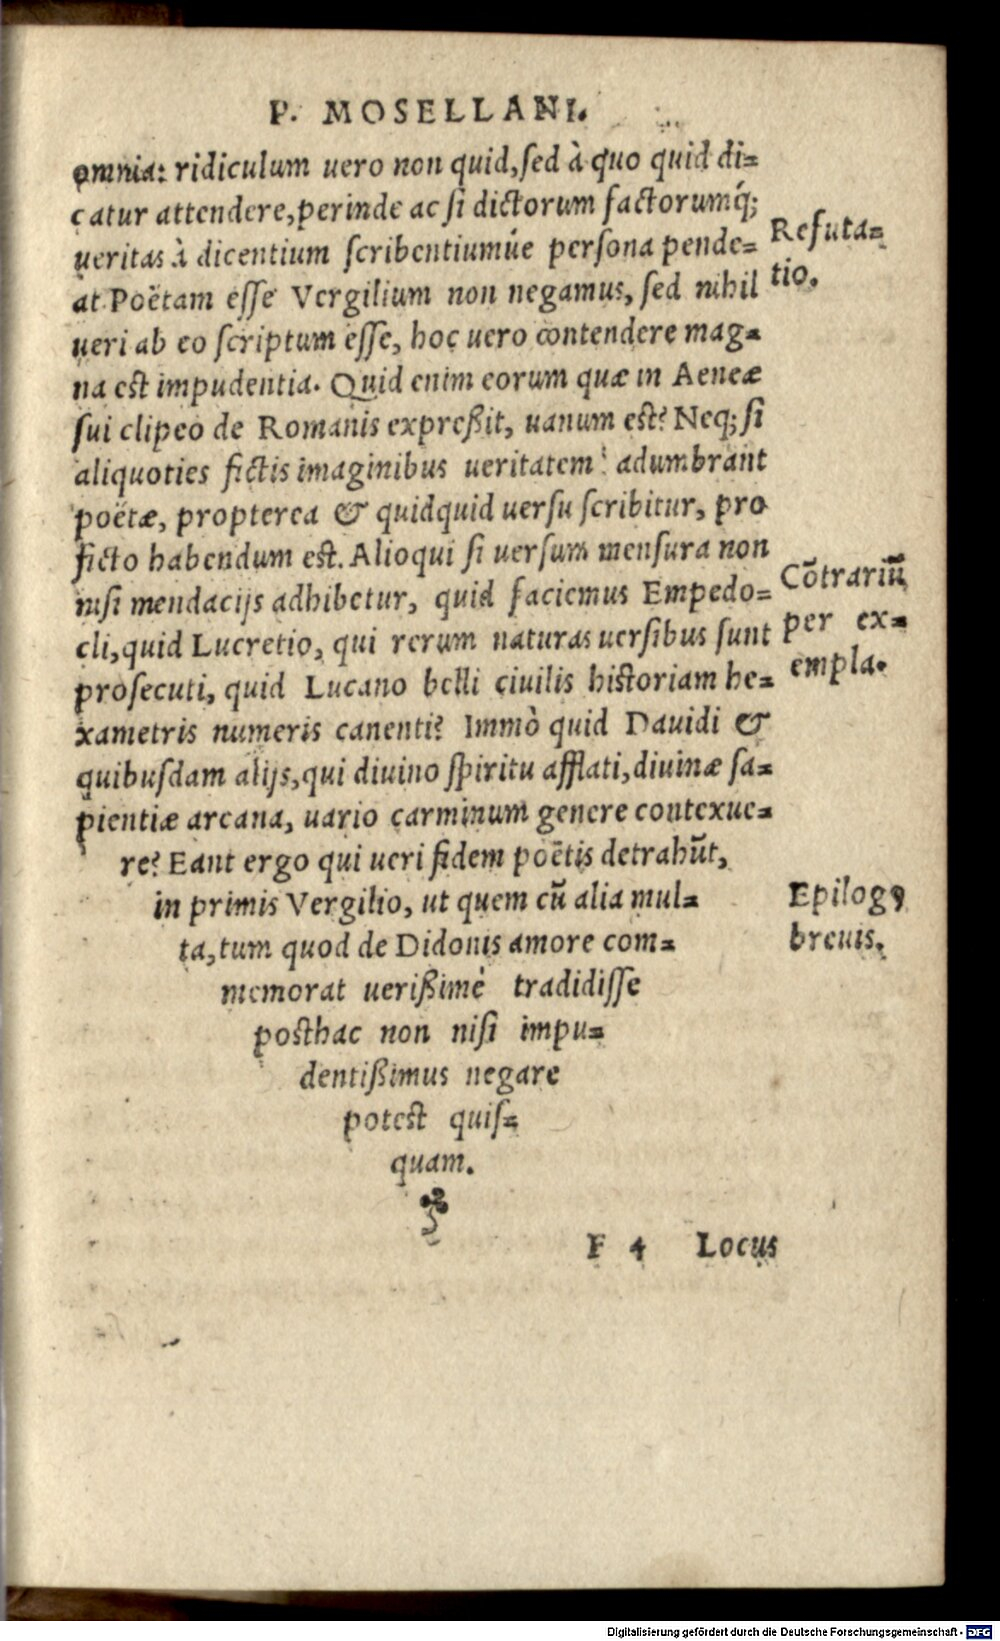 P. MOSELLANI.
omnia: ridiculum uero non quid, sed à quo quid di=
catur attendere, perinde ac si dictorum factorumq́;
ueritas à dicentium scribentiumúe persona pende=
at. Poëtam esse Vergilium non negamus, sed nihil
ueri ab eo scriptum esse, hoc uero contendere mag=
na est impudentia. Quid enim eorum quæ in Aeneæ
sui clipeo de Romanis expreßit, uanum est? Neq; si
aliquoties fictis imaginibus ueritatem adumbrant
poëtæ, propterea & quidquid uersu scribitur, pro
ficto habendum est. Alioqui si uersum mensura non
nisi mendacijs adhibetur, quid faciemus Empedo=
cli, quid Lucretio, qui rerum naturas uersibus sunt
prosecuti, quid Lucano belli ciuilis historiam he=
xametris numeris canenti? Immò quid Dauidi &
quibusdam alijs, qui diuino spiritu afflati, diuinæ sa=
pientiæ arcana, uario carminum genere contexue=
re? Eant ergo qui ueri fidem poëtis detrahũt,
in primis Vergilio, ut quem cũ alia mul=
ta, tum quod de Didonis amore com=
memorat uerißimè tradidisse
posthac non nisi impu=
dentißimus negare
potest quis=
quam.
Refuta=
tio.
Cõtrariũ
per ex=
empla.
Epilogꝰ
breuis.
F 4 Locus
Digitalisierung gefördert durch die Deutsche Forschungsgemeinschaft - DFG